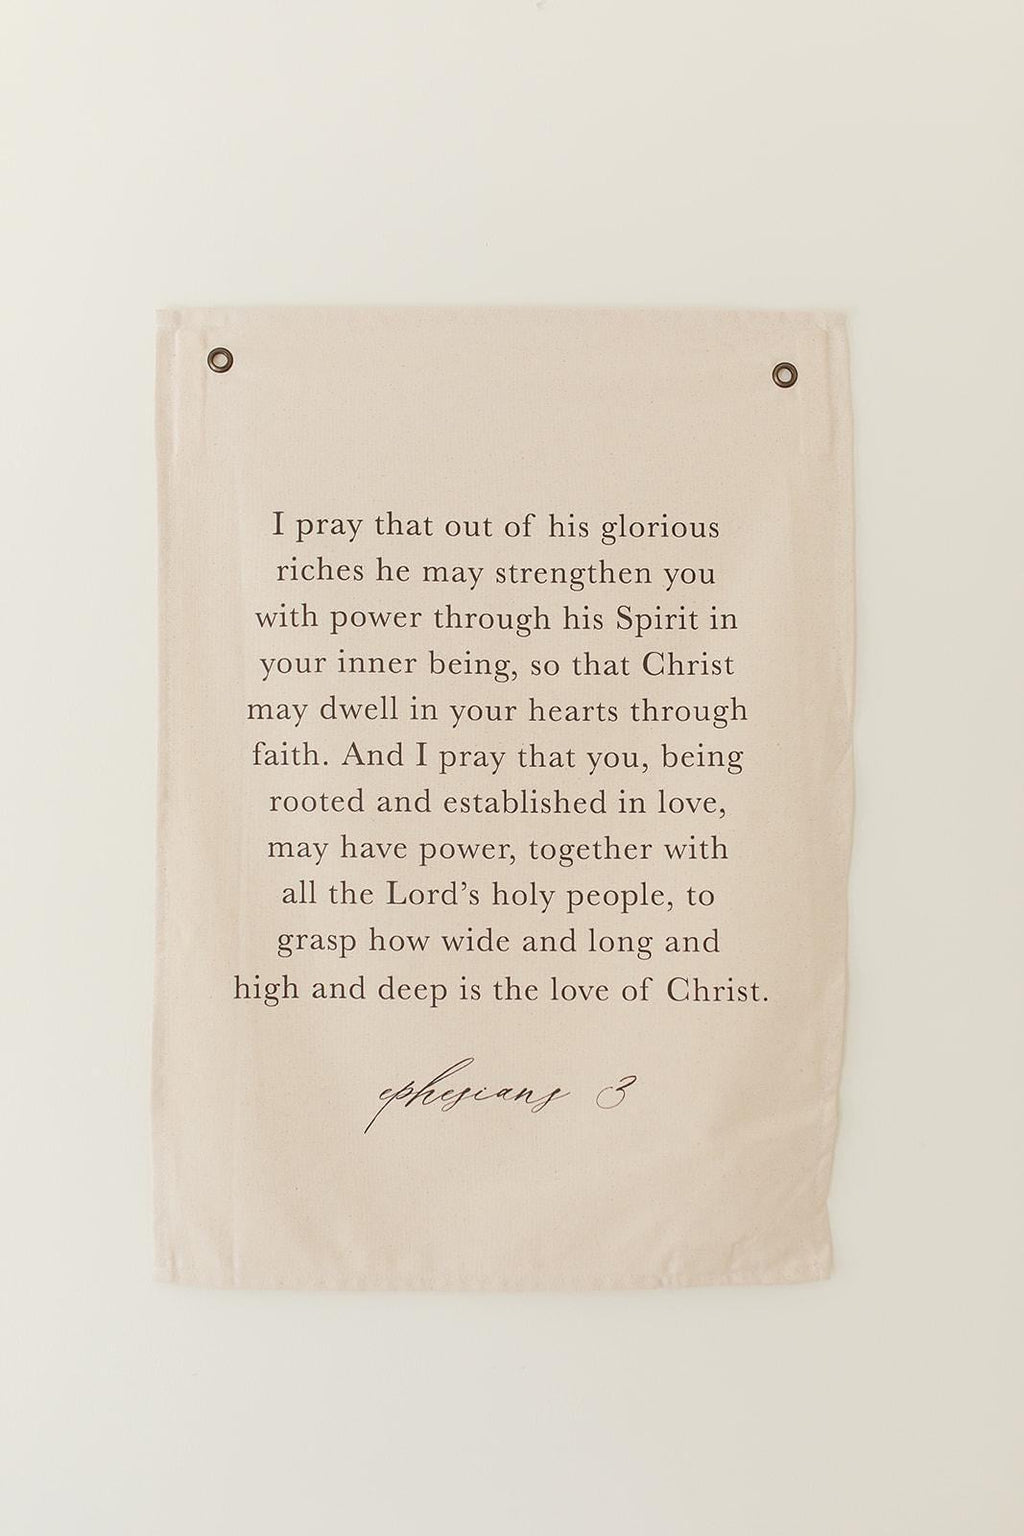 I pray that out of his glorious
riches he may strengthen you
with power through his Spirit in
your inner being, so that Christ
may dwell in your hearts through
faith. And I pray that you, being
rooted and established in love,
may have power, together with
all the Lord’s holy people, to
grasp how wide and long and
high and deep is the love of Christ.
ephesians 3